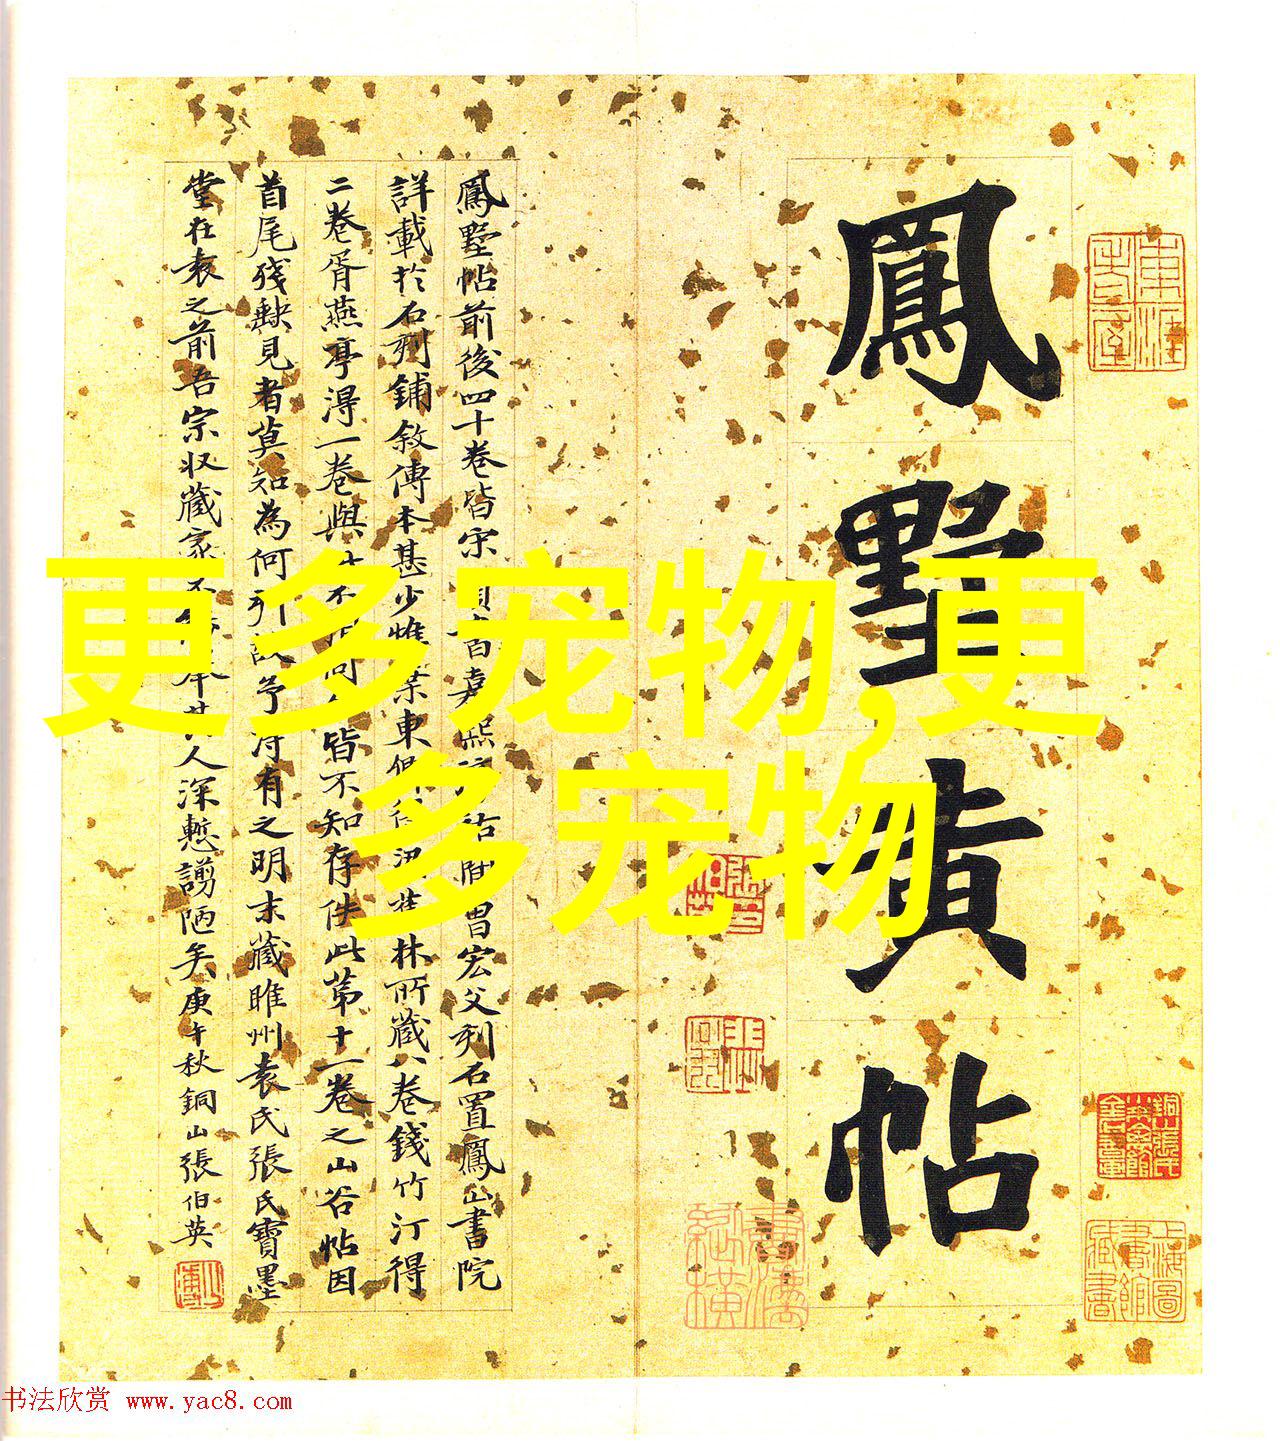 鳳墅黄帖
鳳墅帖前後四十卷皆宋
嘉熙
宏父刻石置鳳山書院
詳載於石刻鋪敘傳本甚少惟葉東
林所藏八卷錢竹汀得
二卷胥燕亭淂一卷與
皆不知存佚此第十一卷之山谷帖因
首尾殘缺見者莫知為何刻
予淂有之明末藏睢州袁氏張氏寶墨
堂在袁之前吾宗収藏家不
人深慙謭陋矣庚午秋銅山張伯英
更多宠物,更
多宠物
上海圖書館藏書
书法欣赏 www.yac8.com